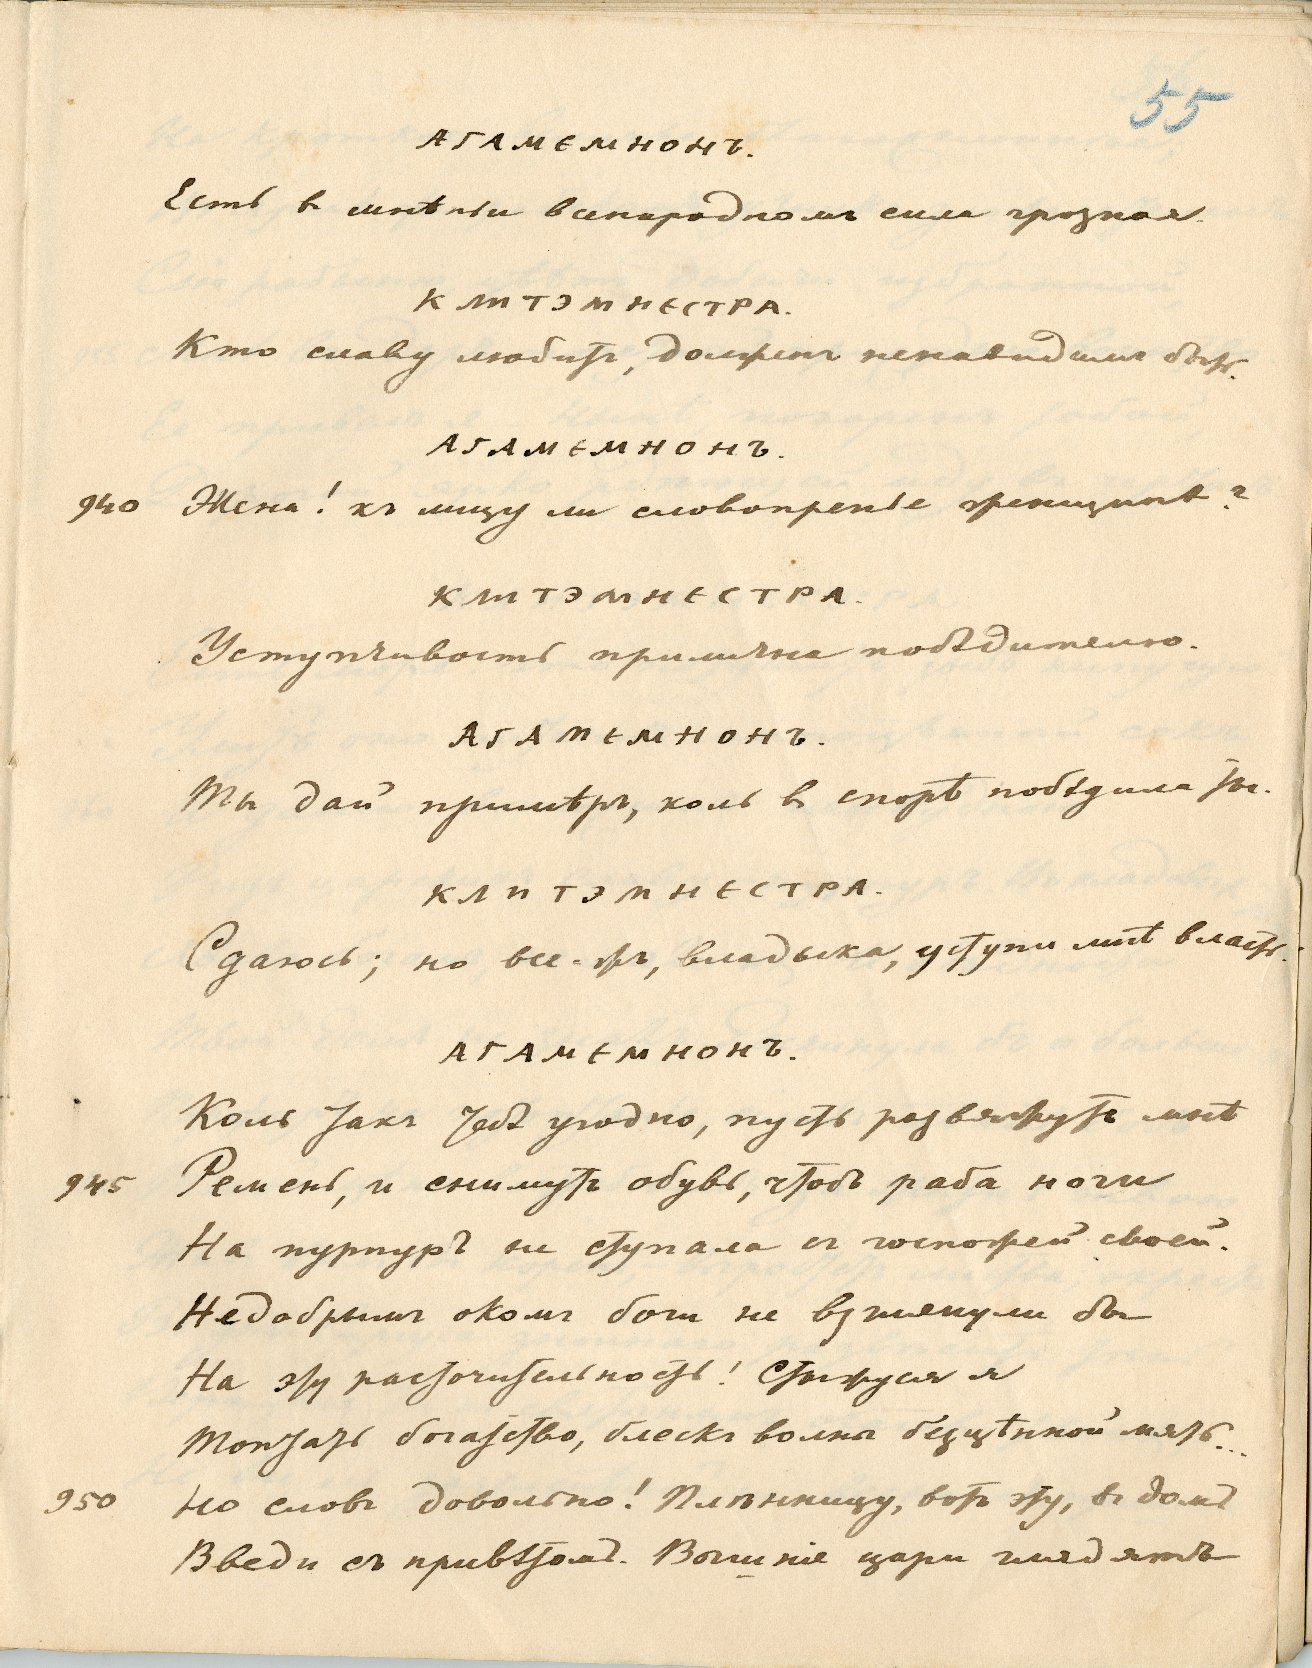 55
АГАМЕМНОНЪ.
Есть въ мнѣньи всенародномъ сила грозная.
КЛИТЭМНЕСТРА.
Кто славу любитъ, долженъ ненавидимъ быть.
АГАМЕМНОНЪ.
940 Жена! къ лицу ли словопренье женщинѣ?
КЛИТЭМНЕСТРА.
Уступчивость прилична побѣдителю.
АГАМЕМНОНЪ.
Ты дай примѣръ, коль въ спорѣ побѣдила ты.
КЛИТЭМНЕСТРА.
Сдаюсь; но все-жъ, владыка, уступи мнѣ власть.
АГАМЕМНОНЪ.
Коль такъ тебѣ угодно, пусть развяжутъ мнѣ
945 Ремень, и снимутъ обувь, чтобъ раба ноги
На пурпуръ не ступала съ госпожей своей.
Недобрымъ окомъ боги не взглянули бы
На эту расточительность! Стыжуся я
Топтать богатство, блескъ волны безцѣнной мять...
950 Но словъ довольно! Плѣнницу, вотъ эту, въ домъ
Введи съ привѣтомъ. Вышніе цари глядятъ